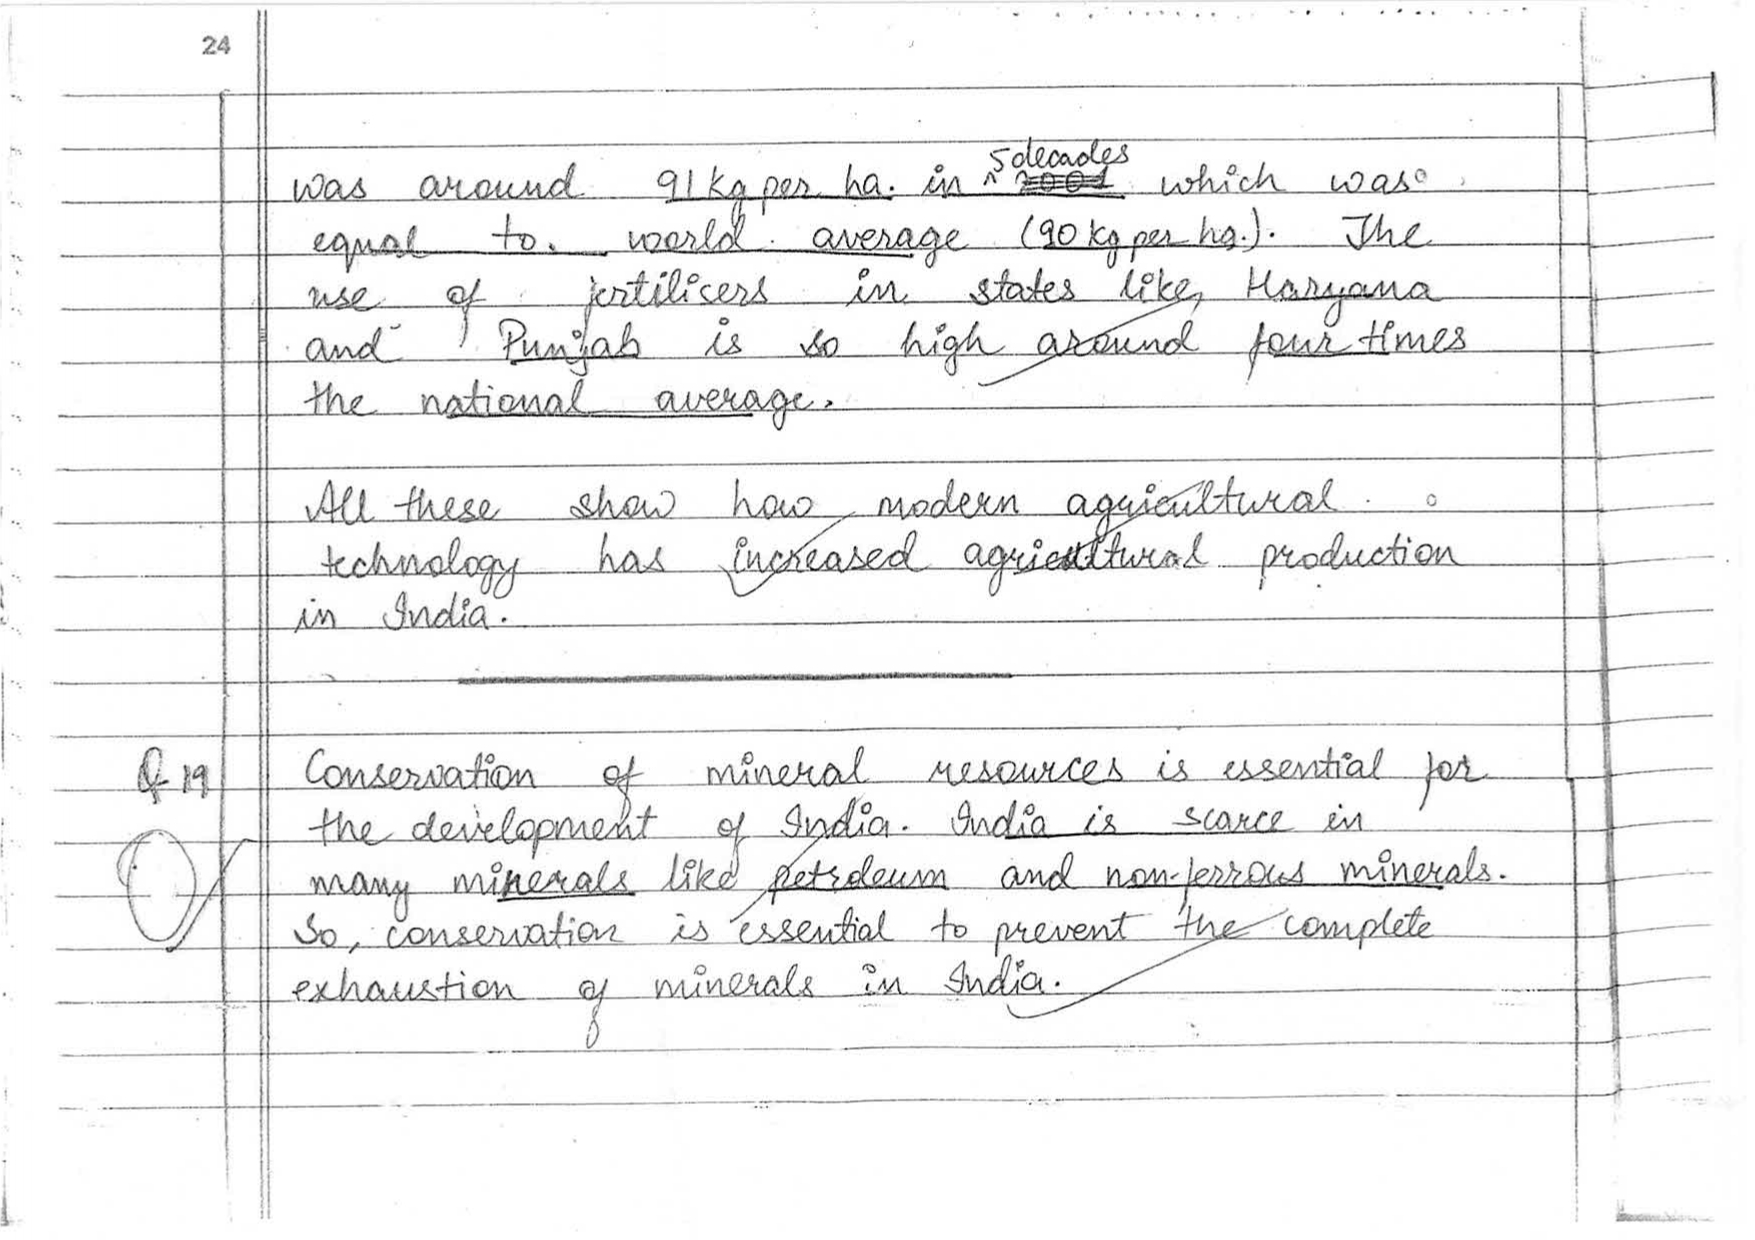 24
5 decades
was around 91 kg per ha. in ^ 2001 which was
equal to world average (90 kg per ha.). The
use of fertilicers in states like, Haryana
and Punjab is so high around four times
the national average.
All these show how modern agricultural
technology has increased agricultural production
in India.
Q-19 Conservation of mineral resources is essential for
the development of India. India is scarce in
many minerals like petroleum and non-ferrous minerals.
So, conservation is essential to prevent the complete
exhaustion of minerals in India.